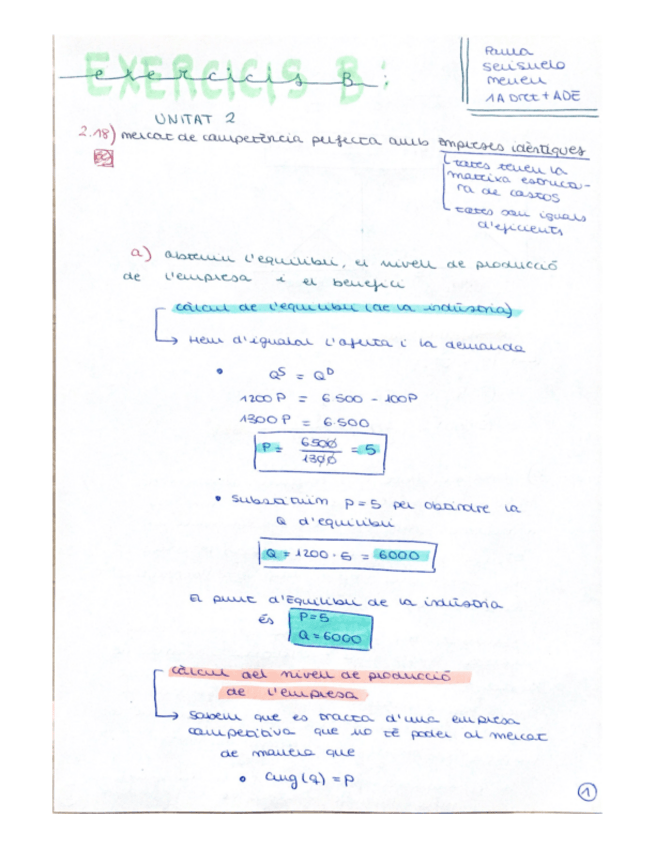 EXERCICIS B:
exercicis B
Paula
Mereu
1A Dret + ADE
UNITAT 2
2.18) mercat de competència perfecta amb empreses idèntiques
totes tenen la
mateixa estructu-
ra de costos
totes són iguals
d'eficients
a) obtenim l'equilibri, el nivell de producció
de l'empresa i el benefici
càlcul de l'equilibri (de la indústria)
Hem d'igualar l'oferta i la demanda
Q^S = Q^D
1200P = 6500 - 100P
1300P = 6.500
P = 6500/1300 = 5
• Substituïm P=5 per obtindre la
Q d'equilibri
Q = 1200 · 5 = 6000
El punt d'Equilibri de la indústria
és P=5
Q=6000
càlcul del nivell de producció
de l'empresa
Sabem que es tracta d'una empresa
competitiva que no té poder al mercat
de manera que
• Cmg(q) = P
1